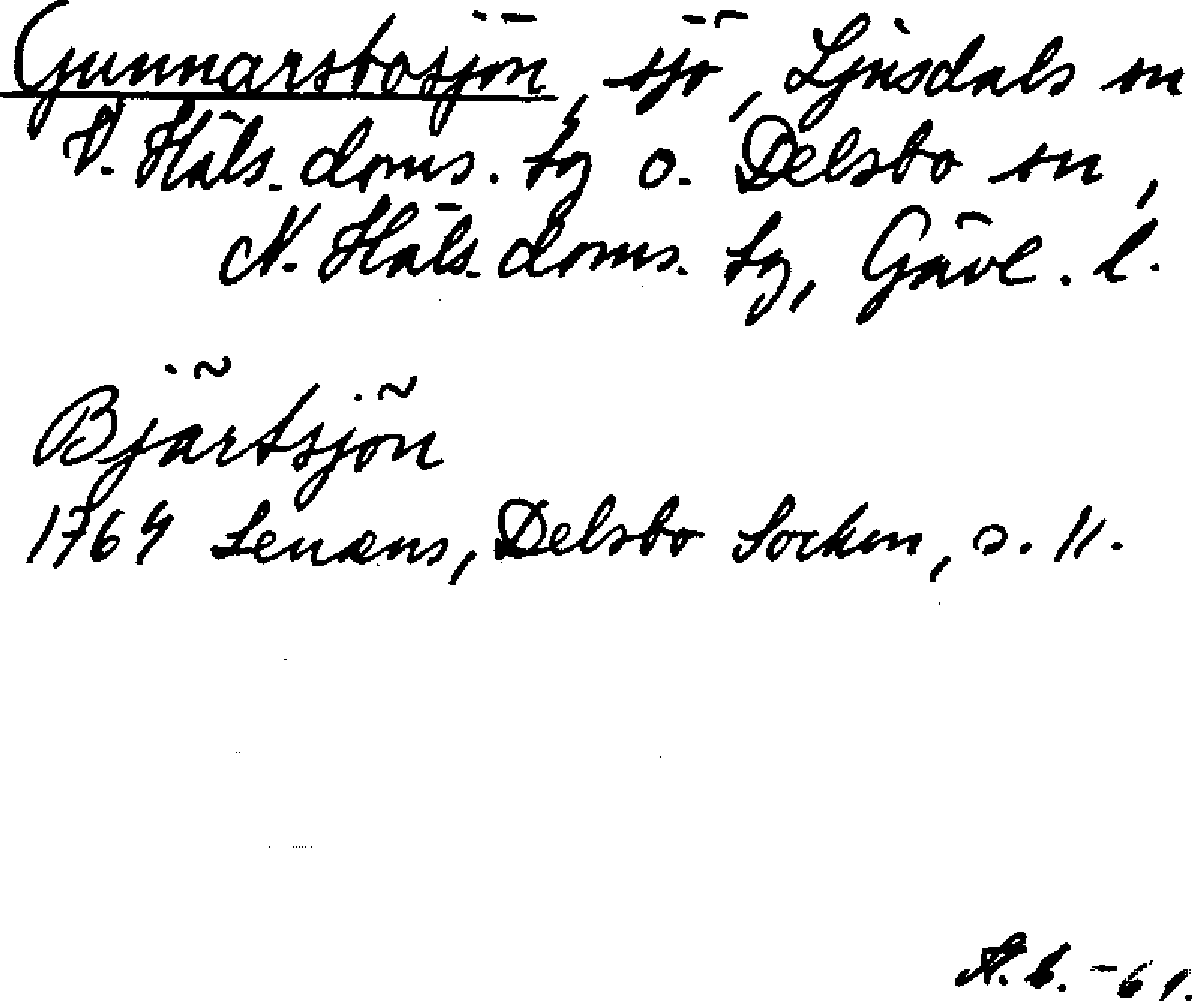 Gunnarsbosjön, sjö, Ljusdals sn
V. Häls. doms. tg o. Delsbo sn,
N. Häls. doms. tg, Gävl. l.
Bjärtsjön
1764 Lenæus, Delsbo Socken, s. 11.
A.B. -61.